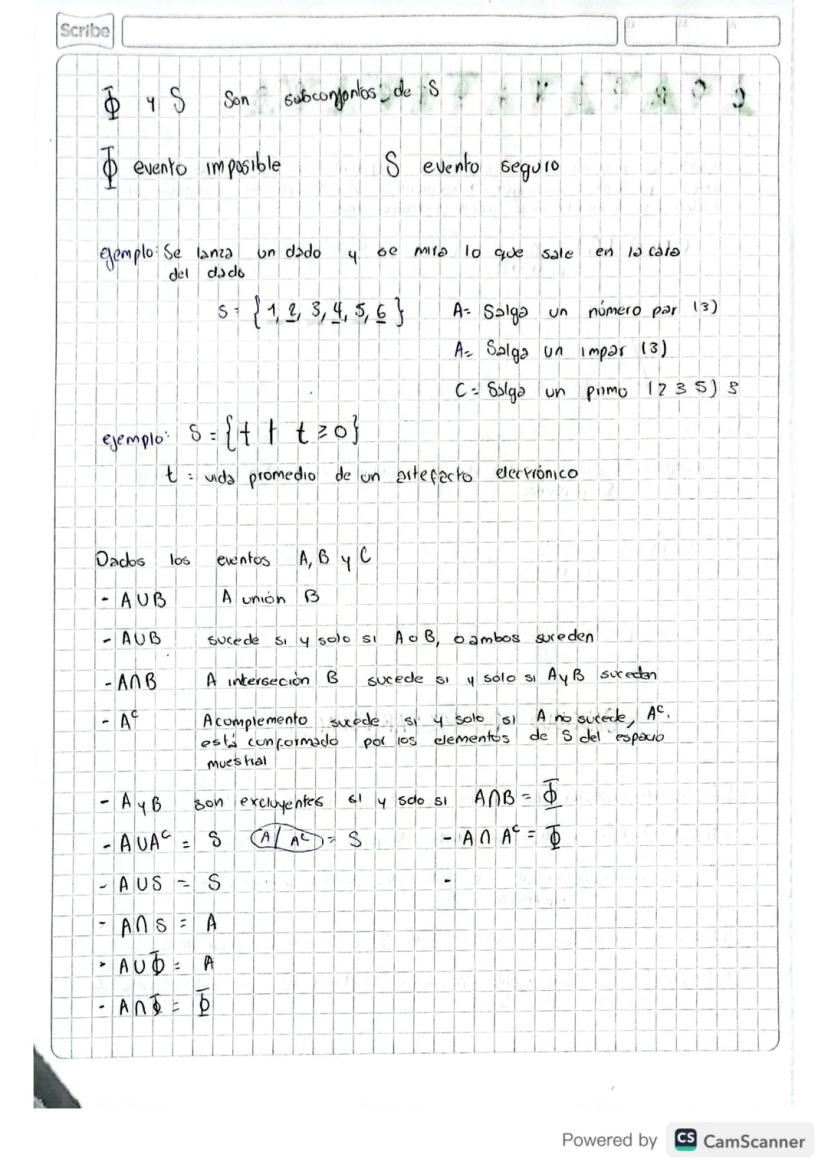 Scribe
Φ y S Son subconjontos de S
Φ evento imposible S evento seguro
ejemplo: Se lanza un dado y se mira lo que sale en la cara
del dado
S = {1, 2, 3, 4, 5, 6} A= Salga un número par (3)
A= Salga un impar (3)
C= Salga un primo (2 3 5) 3
ejemplo: S = {t | t ≥ 0}
t = vida promedio de un artefacto electrónico
Dados los eventos A, B y C
- A∪B A unión B
- A∪B sucede si y solo si A o B, o ambos suceden
- A∩B A interseción B sucede si y solo si A y B suceden
- Aᶜ A complemento sucede si y solo si A no sucede, Aᶜ.
está conformado por los elementos de S del espacio
muestral
- A y B son excluyentes si y solo si A∩B = Φ
- A∪Aᶜ = S A/Aᶜ = S - A∩Aᶜ = Φ
- A∪S = S -
- A∩S = A
- A∪Φ = A
- A∩Φ = Φ
Powered by CS CamScanner